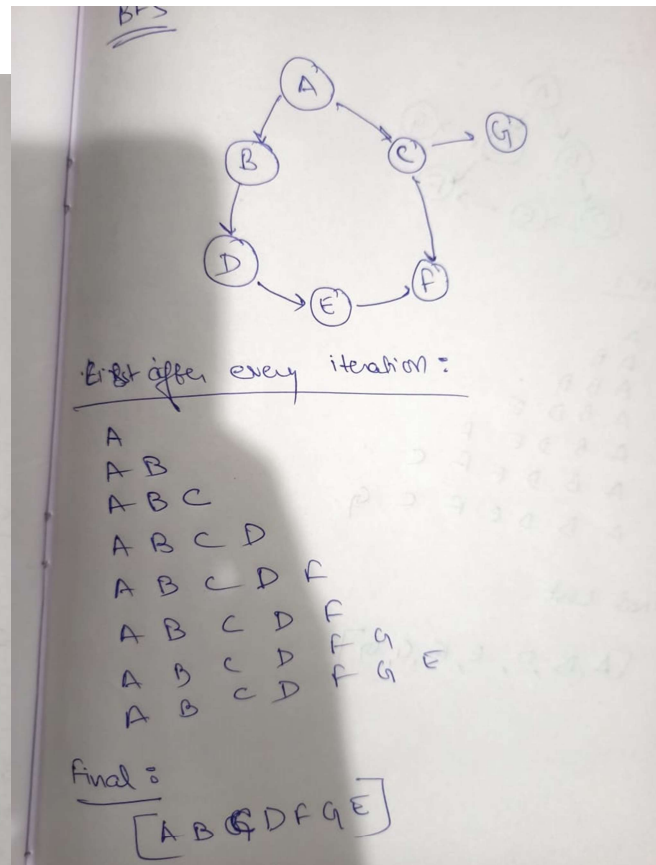 BFS
A
B
C
G
D
E
F
List after every iteration:
A
A B
A B C
A B C D
A B C D F
A B C D F
A B C D F G
A B C D F G E
Final:
[A B C D F G E]